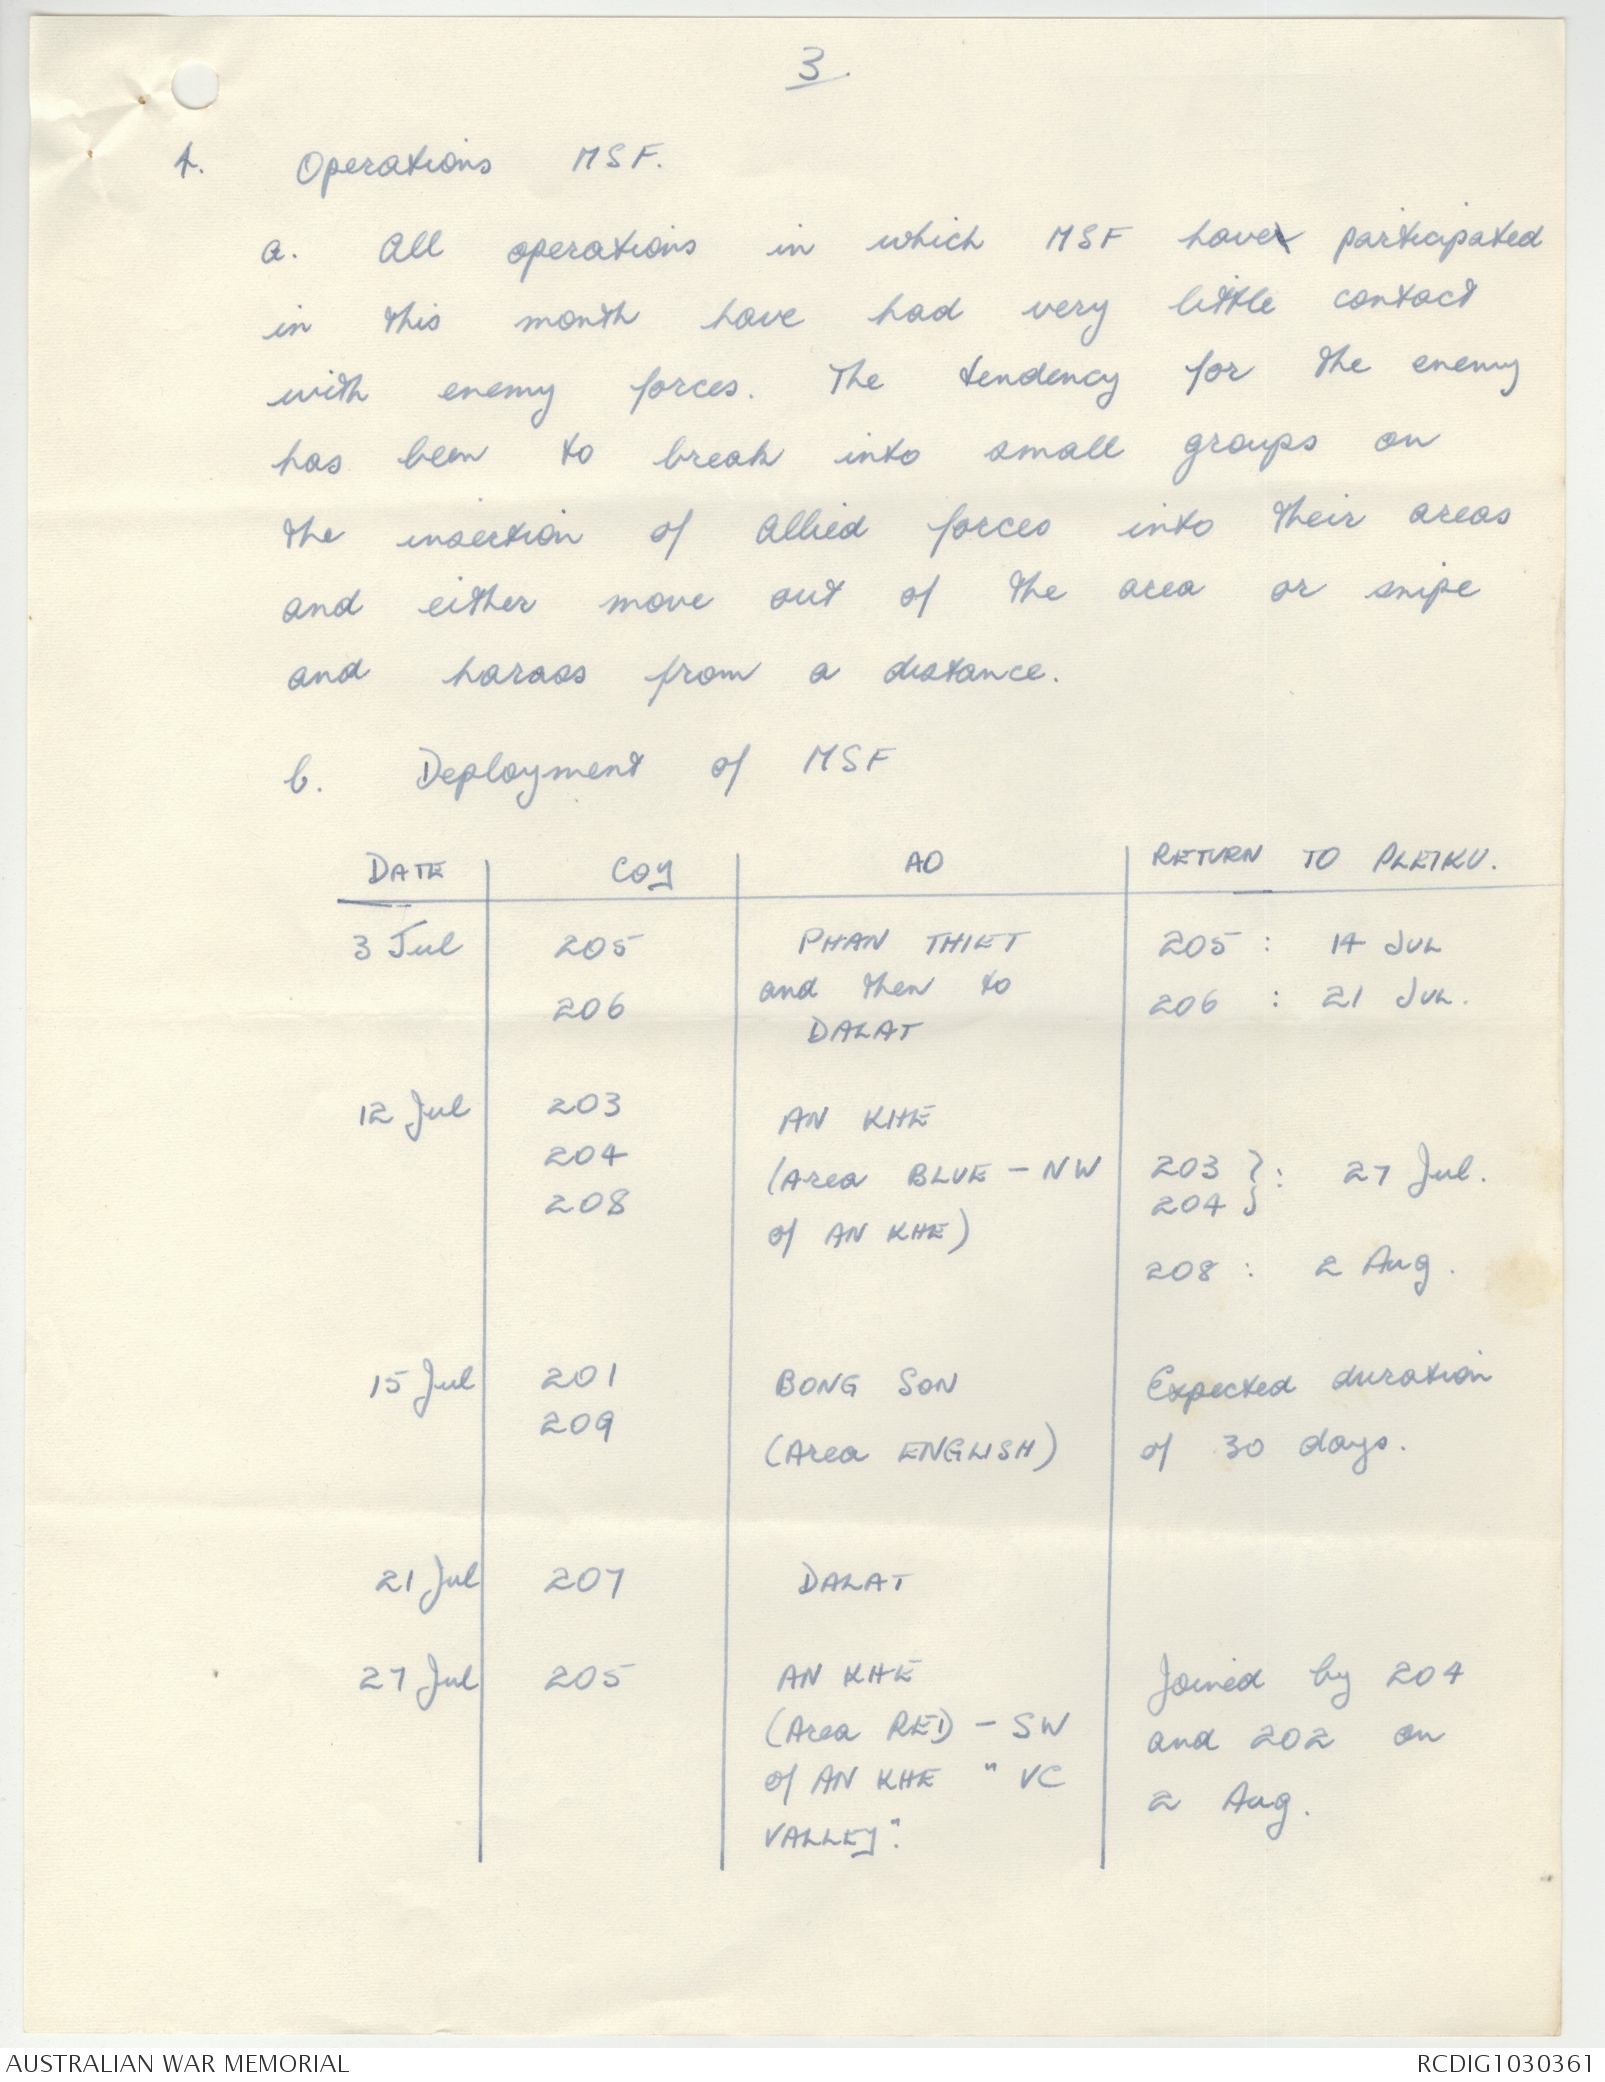 3.
4. Operations MSF.
a. All operations in which MSF have participated
in this month have had very little contact
with enemy forces. The tendency for the enemy
has been to break into small groups on
the insertion of allied forces into their areas
and either move out of the area or snipe
and harass from a distance.
b. Deployment of MSF
DATE COY AO RETURN TO PLEIKU.
3 Jul 205 PHAN THIET 205 : 14 JUL
and then to
206 206 : 21 JUL.
DALAT
12 Jul 203 AN KHE
204 (Area BLUE - NW 203 }: 27 Jul.
208 of AN KHE) 204 }
208 : 2 Aug.
15 Jul 201 BONG SON Expected duration
209 (Area ENGLISH) of 30 days.
21 Jul 207 DALAT
27 Jul 205 AN KHE Joined by 204
(Area RED) - SW and 202 on
of AN KHE "VC 2 Aug.
VALLEY".
AUSTRALIAN WAR MEMORIAL RCDIG1030361